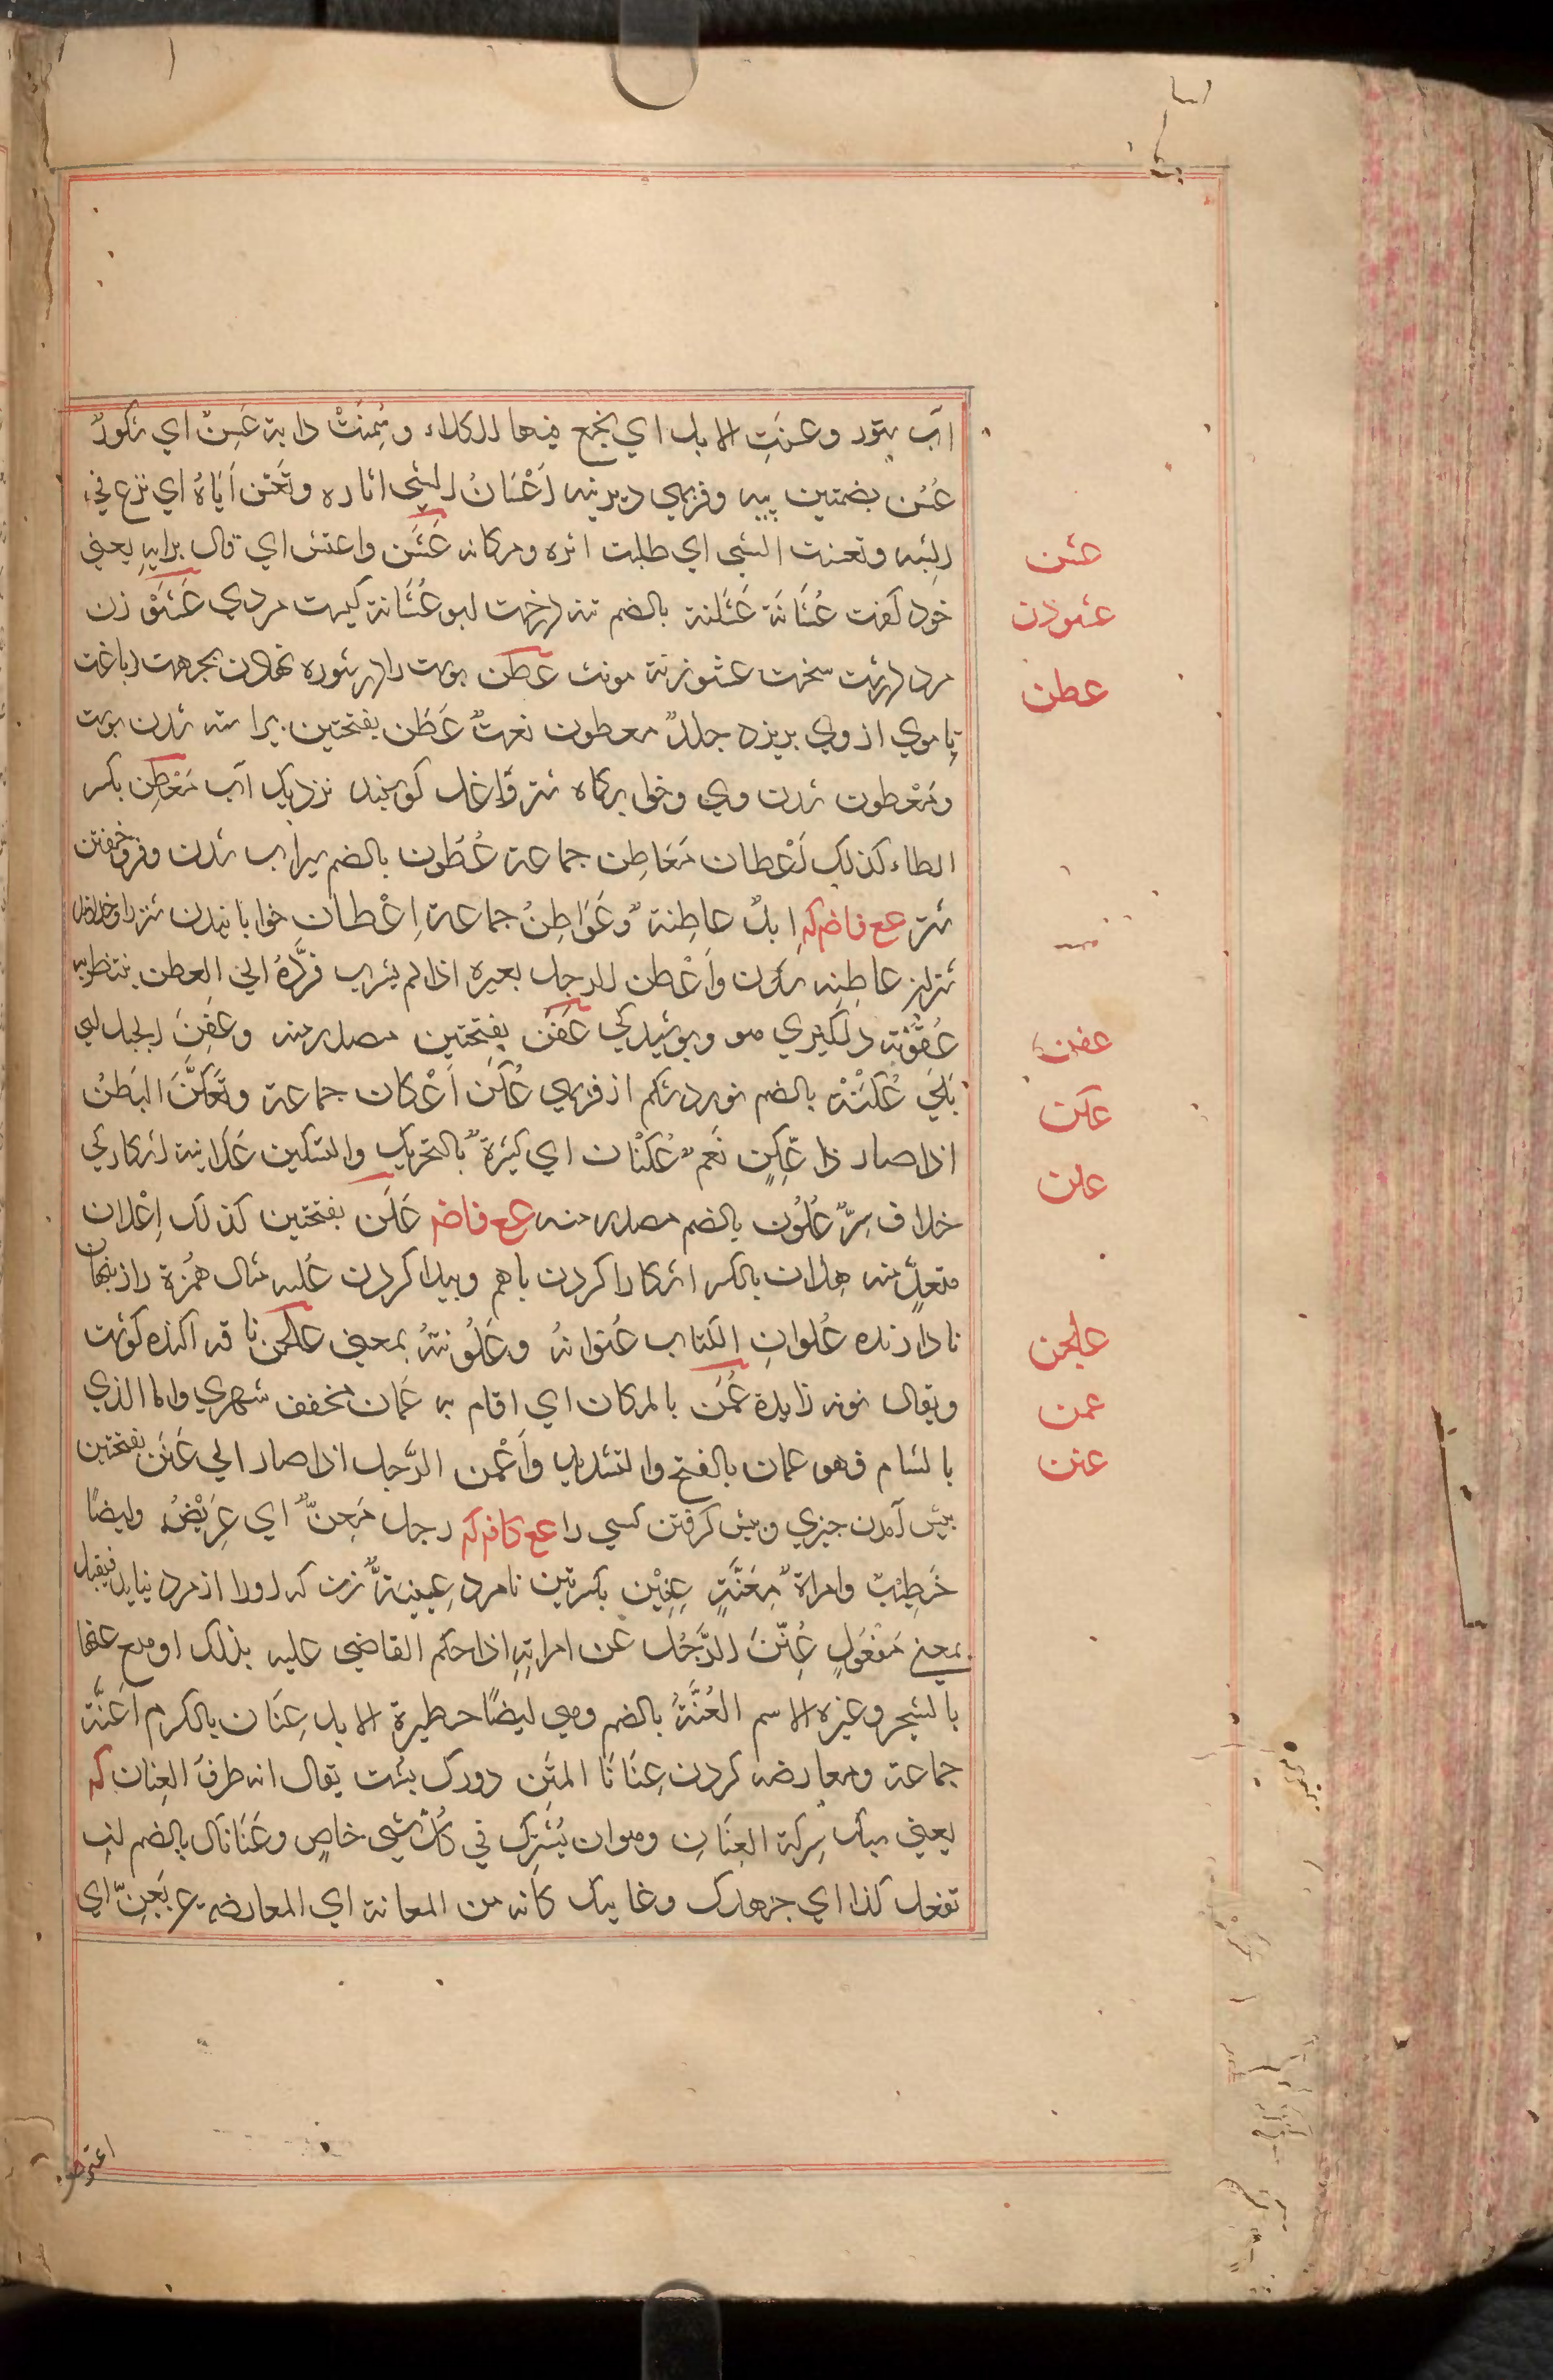 آب بتور وعسنت الابل اي نجع فيها الكلاء وسمنت دابة عَسِنٌ اي شكورٌ
عُسُن بضمتين پيه وفربهي ديرينه اَعْسَانُ الشي اثاره وتَعَسَّن اَبَاهُ اي نزع في
الشبه وتعسنت الشي اي طلبت اثره ومكانه عَشَن واعتشن اي قال برايه يعني
خود گفت عُشَانَة بالضم تنه درخت مردي عَشَوْزن
مرد درشت سخت عشوزنة مونث عطن پوست را در شوره نهادن بجهت دباغت
تا موي از وي بريزد جلدٌ معطون نعتٌ عَطَن بفتحتين پيراسته شدن پوست
ومَعْطون شدن وي وخوابگاه شتر وآغل گوسفند نزديك آب مَعْطِن بكسر
الطاء كذلك اَعْطان مَعَاطِن جماعة عُطُون بالضم سيراب شدن وفروخفتن
شتر عع فاضم كم ابلٌ عاطِنة وعَوَاطِنُ جماعة اِعْطان خوابانيدن شتر را
شتر عاطِنه شدن واَعْطن الرجل بعيره اذا لم يشرب فردَّهُ الي العطن ينتظر به
عُفُوْنة وپوشيدگي عَفَن بفتحتين مصدر منه وعَفِنَ الحبل اي
بَلِيَ عُكْنَة بالضم نورد شكم از فربهي عُكَن اَعْكان جماعة وتَعَكَّنَ البَطنُ
اذا صار ذا عُكَنٍ نَعَم عَكَنان اي كثيرة بالتحريك والتسكين عَلَانية اشكارگي
خلاف سِرٌّ عُلُوْن بالضم مصدر منه عع فاضم عَلَن بفتحتين كذلك اِعْلان
متعدٍّ منه عِلان بالكسر اشكارا كردن باهم وپيدا كردن عُلَنه مثال هُمَزة راز پنهان
نادارنده عُلوان الكتاب عُنوانهُ وعَلْوَنتُهُ بمعني علجن ناقه آكنده گوشت
ويقال نونه زايدة عَمَن بالمكان اي اقام به عُمَان مخفف شهري واما الذي
بالشام فهو عمان بالفتح والتشديد واَعْمن الرَّجل اذا صار الي عَنَن بفتحتين
پيش آمدن چيزي وپيش گرفتن كسي را عع كافم كم رجل مِعَنٌّ اي عِرّيْضٌ وايضًا
خَطِيْبٌ وامراة مِعَنَّةٍ عِنِّيْن بكسرتين نامرد عِنّينةٌ زن كه او را از مرد نبايد فيقبل
بمعني مَفْعَولٍ عُنِّنَ الرَّجُل عَن امراتِهِ اذا حكم القاضي عليه بذلك او منع عنها
بالسّحر وغيره الاسم العُنَّةُ بالضم وهي ايضًا حظيرة الابل عِنَان بالكسر اَعِنَّة
جماعة ومعارضه كردن عِنَانَا المتْن دورگ پشت يقال انه طرفُ العِنان كم
يعني سبك شركة العِنَانِ وهو ان يَشتَرِكَ في كل شي خاصٍ وعُنَانَاك بالضم ان
تفعل كذا اي جهدك وغايتك كانه من المعانة اي المعارضه عن يَعِنّ اي
اعترض
عشن
عشوذن
عطن
عفن
عكن
علن
علجن
عمن
عنن